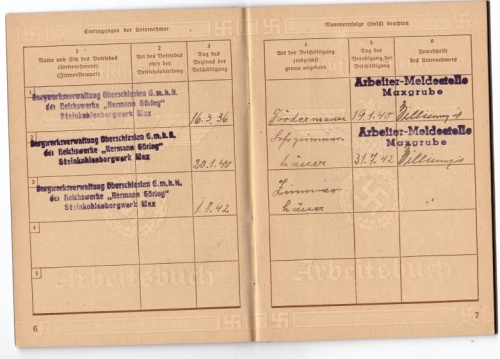 Eintragungen der Unternehmer
1
Name und Sitz des Betriebes
(Unternehmers)
(Firmenstempel)
2
Art des Betriebes
oder der
Betriebsabteilung
3
Tag des
Beginns der
Beschäftigung
1
Bergwerksverwaltung Oberschlesien G.m.b.H.
der Reichswerke „Hermann Göring"
Steinkohlenbergwerk Max
16.3.36
2
Bergwerksverwaltung Oberschlesien G.m.b.H.
der Reichswerke „Hermann Göring"
Steinkohlenbergwerk Max
20.1.40
3
Bergwerksverwaltung Oberschlesien G.m.b.H.
der Reichswerke „Hermann Göring"
Steinkohlenbergwerk Max
1.8.42
4
5
Arbeitsbuch
6
Nummernfolge (links) beachten
4
Art der Beschäftigung
(möglichst
genau angeben)
5
Tag der
Beendigung der
Beschäftigung
6
Unterschrift
des Unternehmers
Arbeiter-Meldestelle
Maxgrube
Fördermann 19.1.40
Arbeiter-Meldestelle
Maxgrube
häuer 31.7.42
Zimmer
häuer
Arbeitsbuch
7